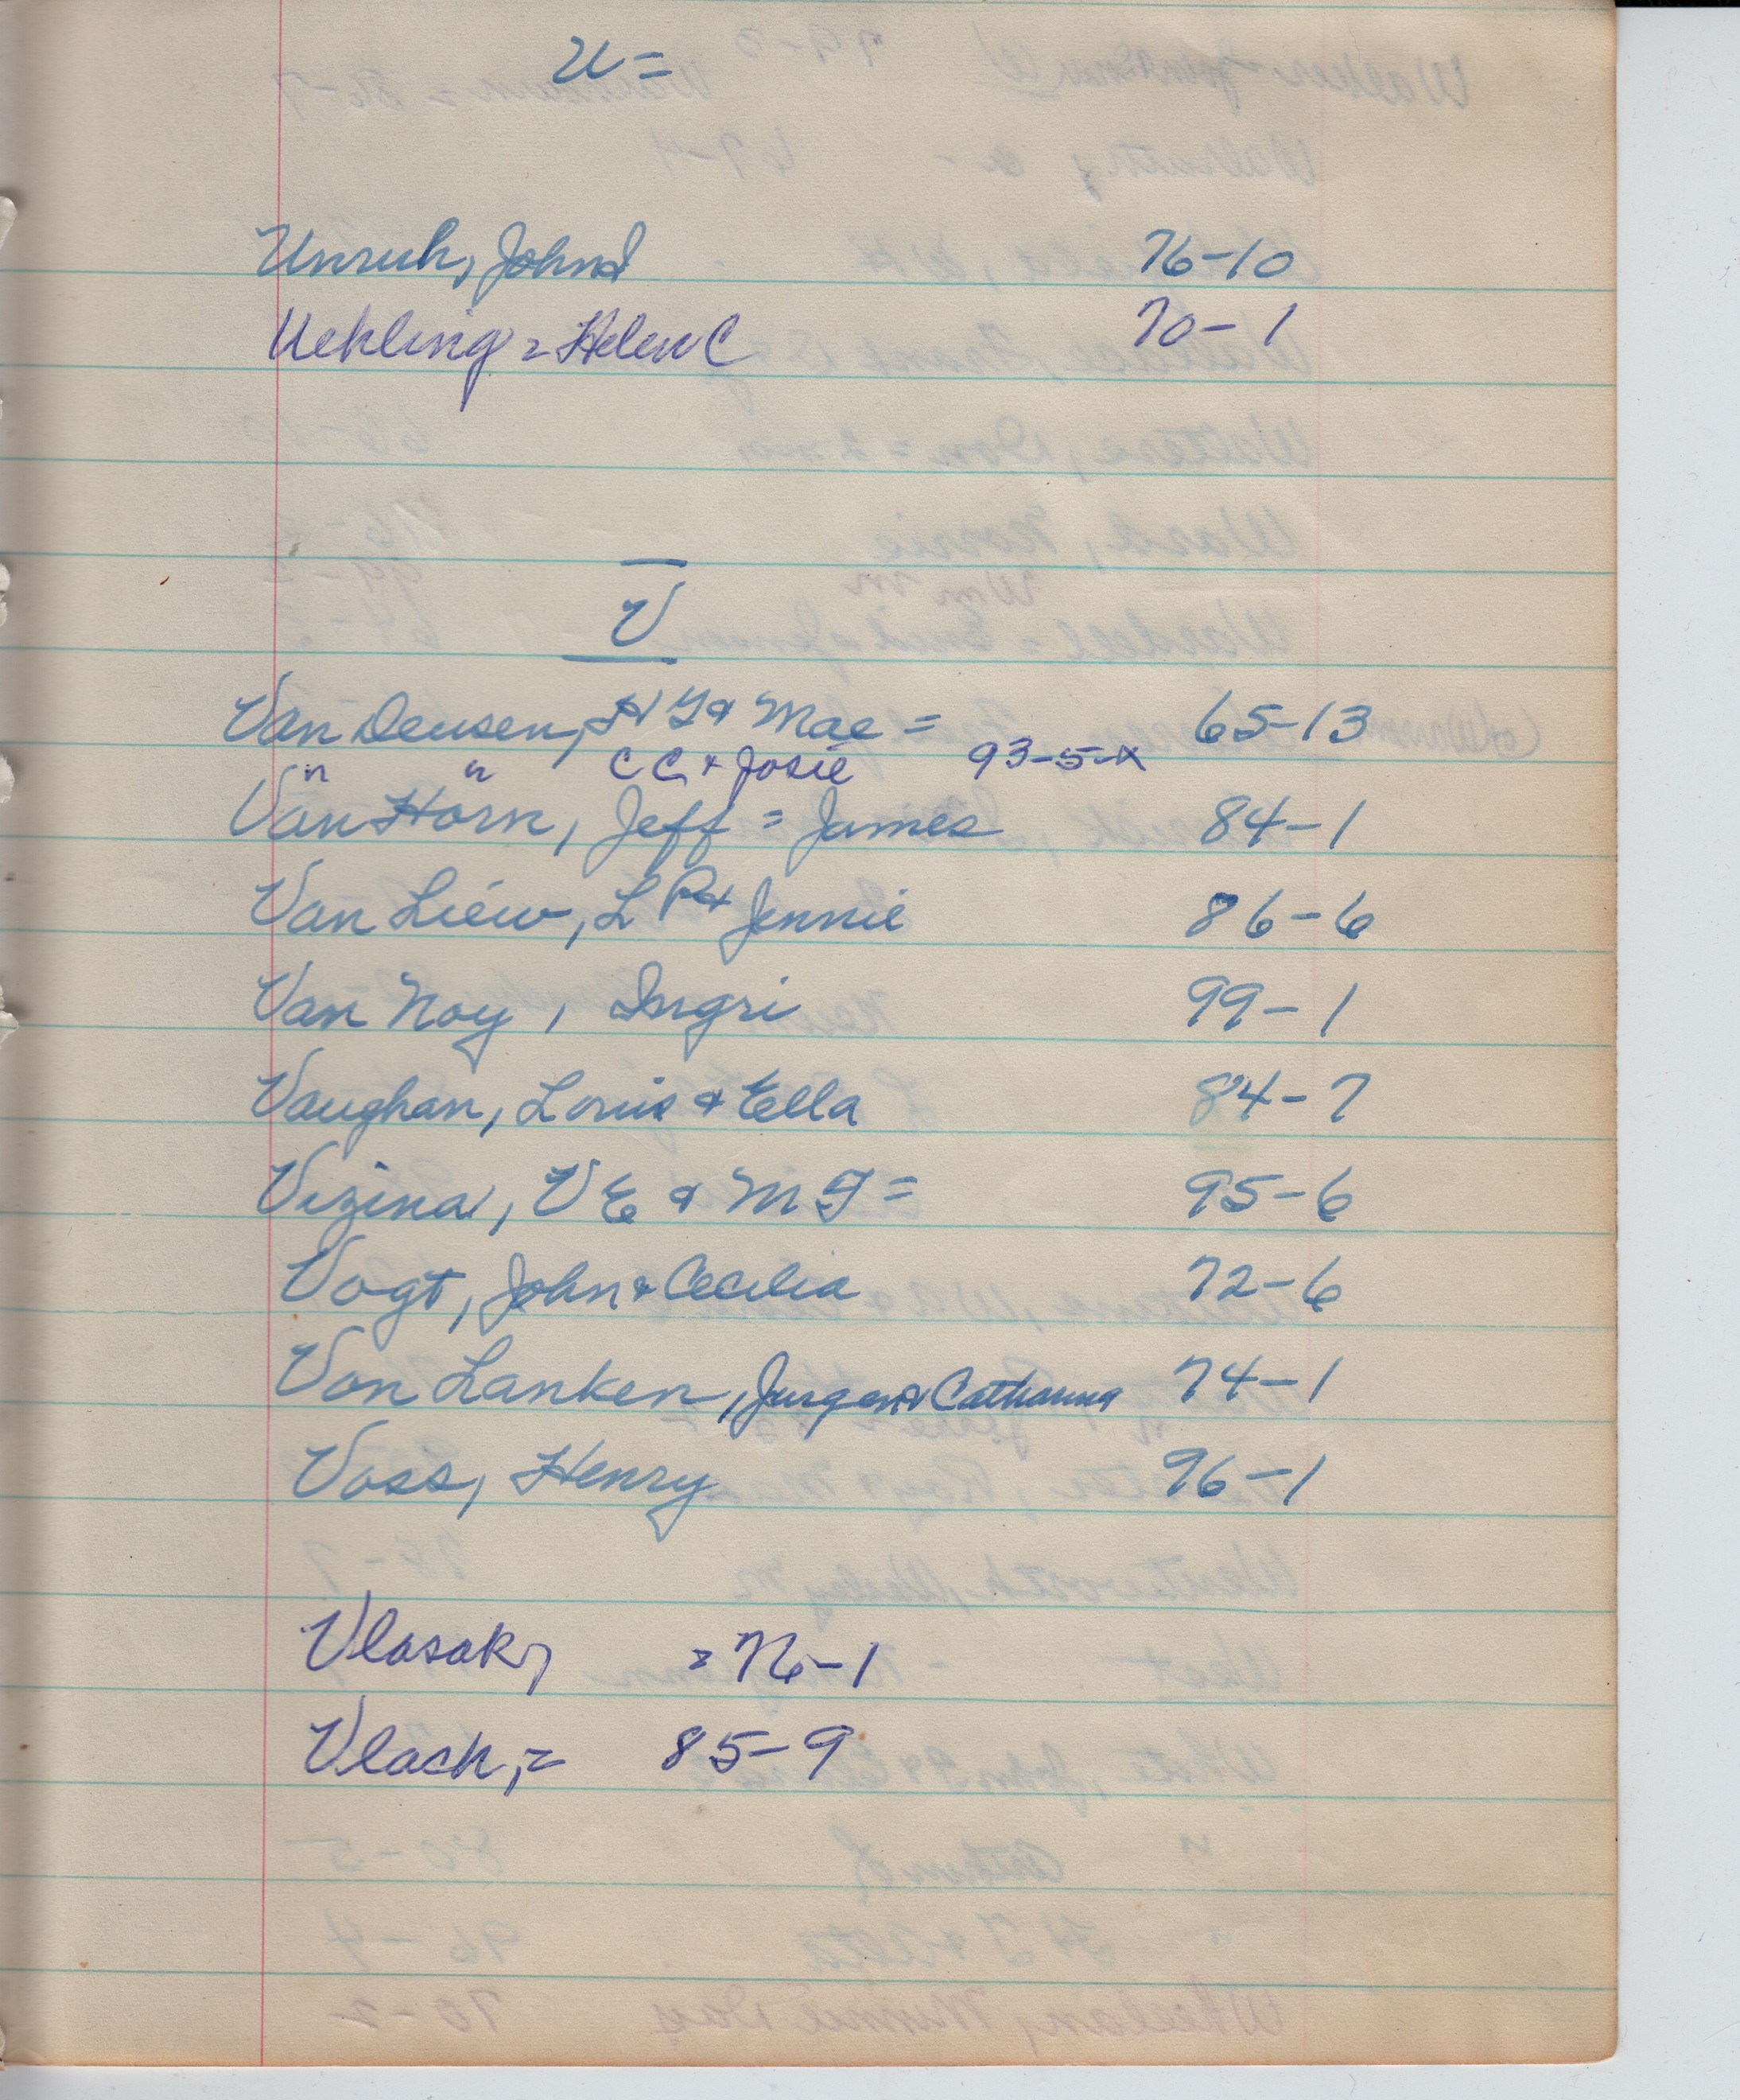 U=
Unruh, John J 76-10
Uehling = Helen C 70-1
V
Van Deusen, H G & Mae = 65-13
" " C C & Josie 93-5-x
Van Horn, Jeff = James 84-1
Van Liew, L P & Jennie 86-6
Van Noy, Ingri 99-1
Vaughan, Louis & Ella 84-7
Vizina, V E & M F = 95-6
Vogt, John & Cecelia 72-6
Von Lanken, Jurgen & Catharina 74-1
Voss, Henry 96-1
Vlasak, = 76-1
Vlach, = 85-9